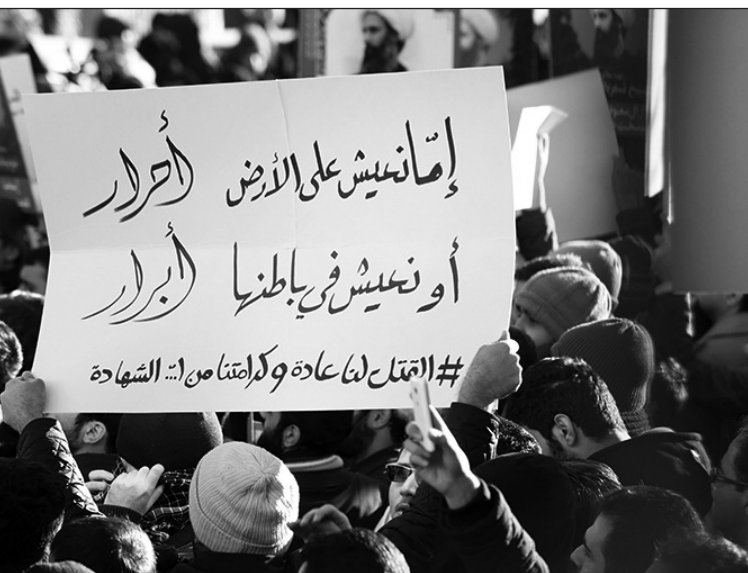 إمّا نعيش على الأرض أحرار
أو نعيش في باطنها أبرار
#القتل لنا عادة وكرامتنا من ا... الشهادة